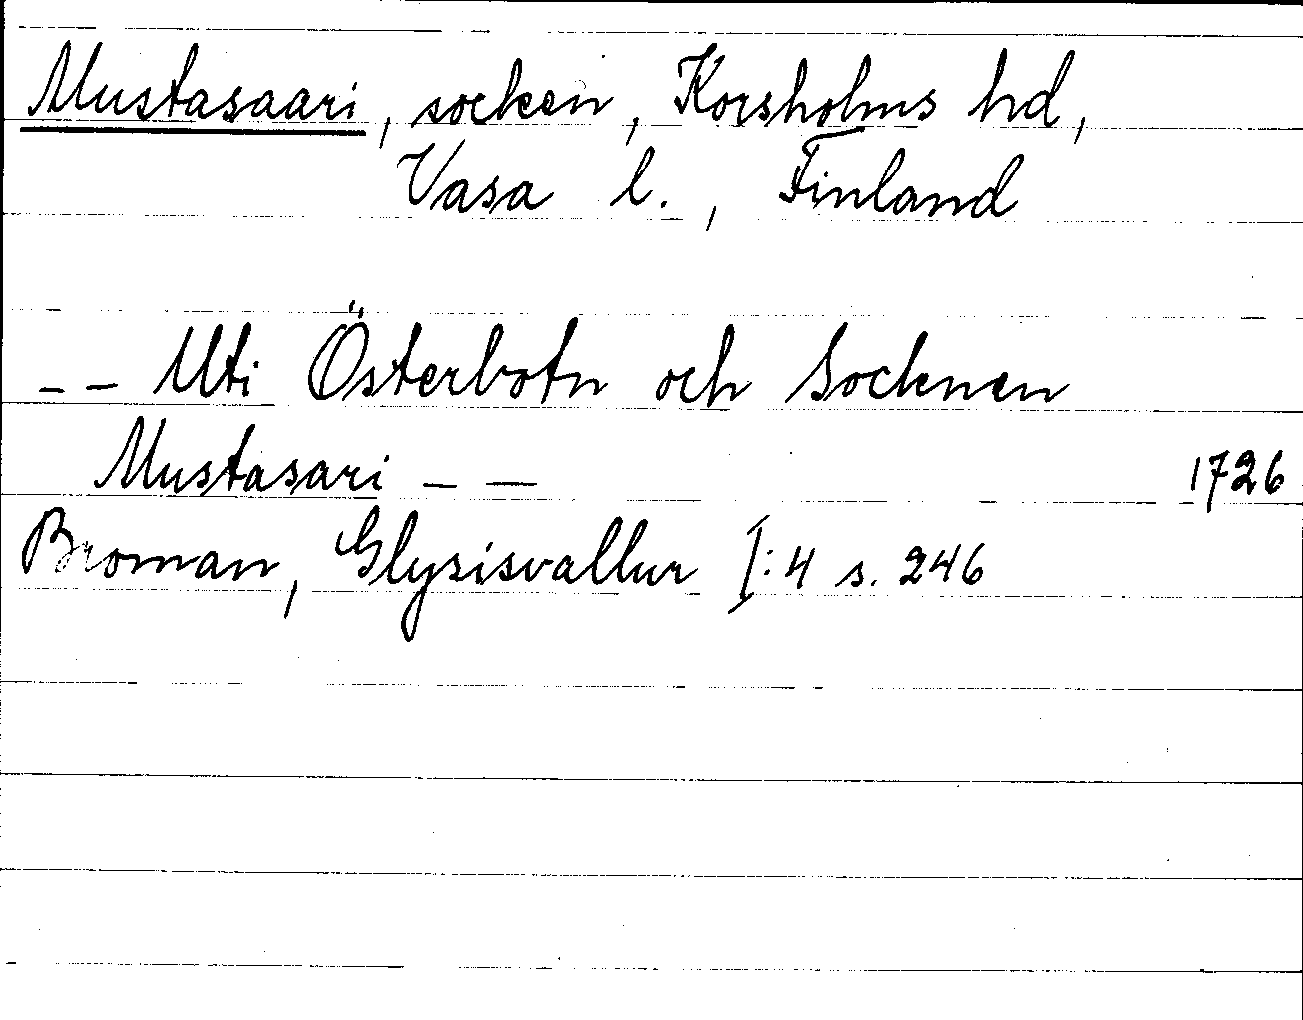 Mustasaari, socken, Korsholms hd,
Vasa l., Finland
-- Uti Österbotn och Socknen
Mustasari -- 1726
Broman, Glysisvallur I:4 s. 246